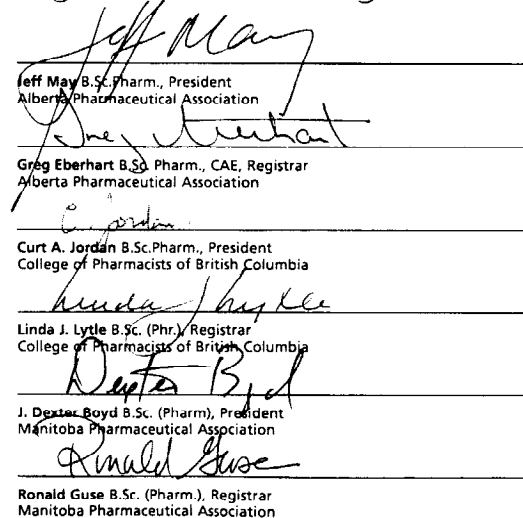 Jeff May
Jeff May B.Sc.Pharm., President
Alberta Pharmaceutical Association
Greg Eberhart
Greg Eberhart B.Sc. Pharm., CAE, Registrar
Alberta Pharmaceutical Association
C. Jordan
Curt A. Jordan B.Sc.Pharm., President
College of Pharmacists of British Columbia
Linda J Lytle
Linda J. Lytle B.Sc. (Phr.), Registrar
College of Pharmacists of British Columbia
Dexter Boyd
J. Dexter Boyd B.Sc. (Pharm), President
Manitoba Pharmaceutical Association
Ronald Guse
Ronald Guse B.Sc. (Pharm.), Registrar
Manitoba Pharmaceutical Association